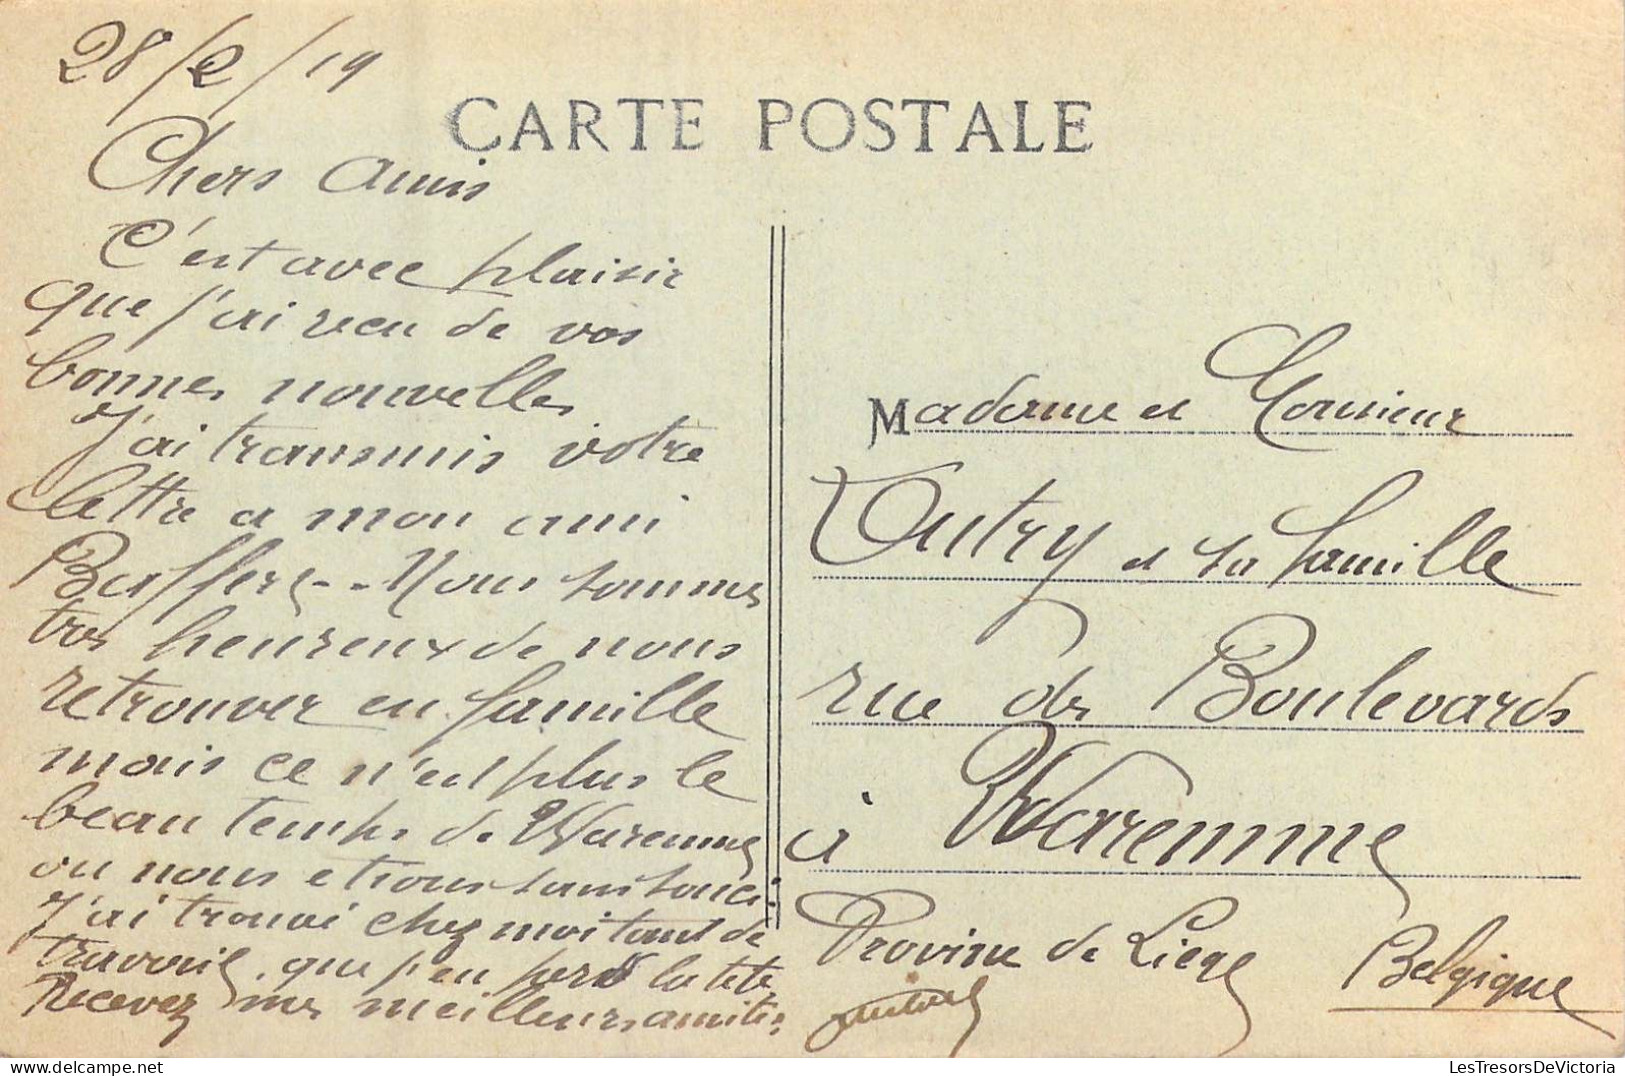 28/2/19
CARTE POSTALE
Chers Amis
C'est avec plaisir
que j'ai recu de vos
bonnes nouvelles
J'ai transmis votre
lettre a mon ami
Nous sommes
tres heureux de nous
retrouver en famille
mais ce n'est plus le
beau temps de Waremme
ou nous etions sans souci.
J'ai trouvé chez moi tant de
travail, que j'en perds la tete
Recevez mes meilleurs amities
Madame et Monsieur
et sa famille
rue des Boulevards
à Waremme
Province de Liege
Belgique
LesTresorsDeVictoria